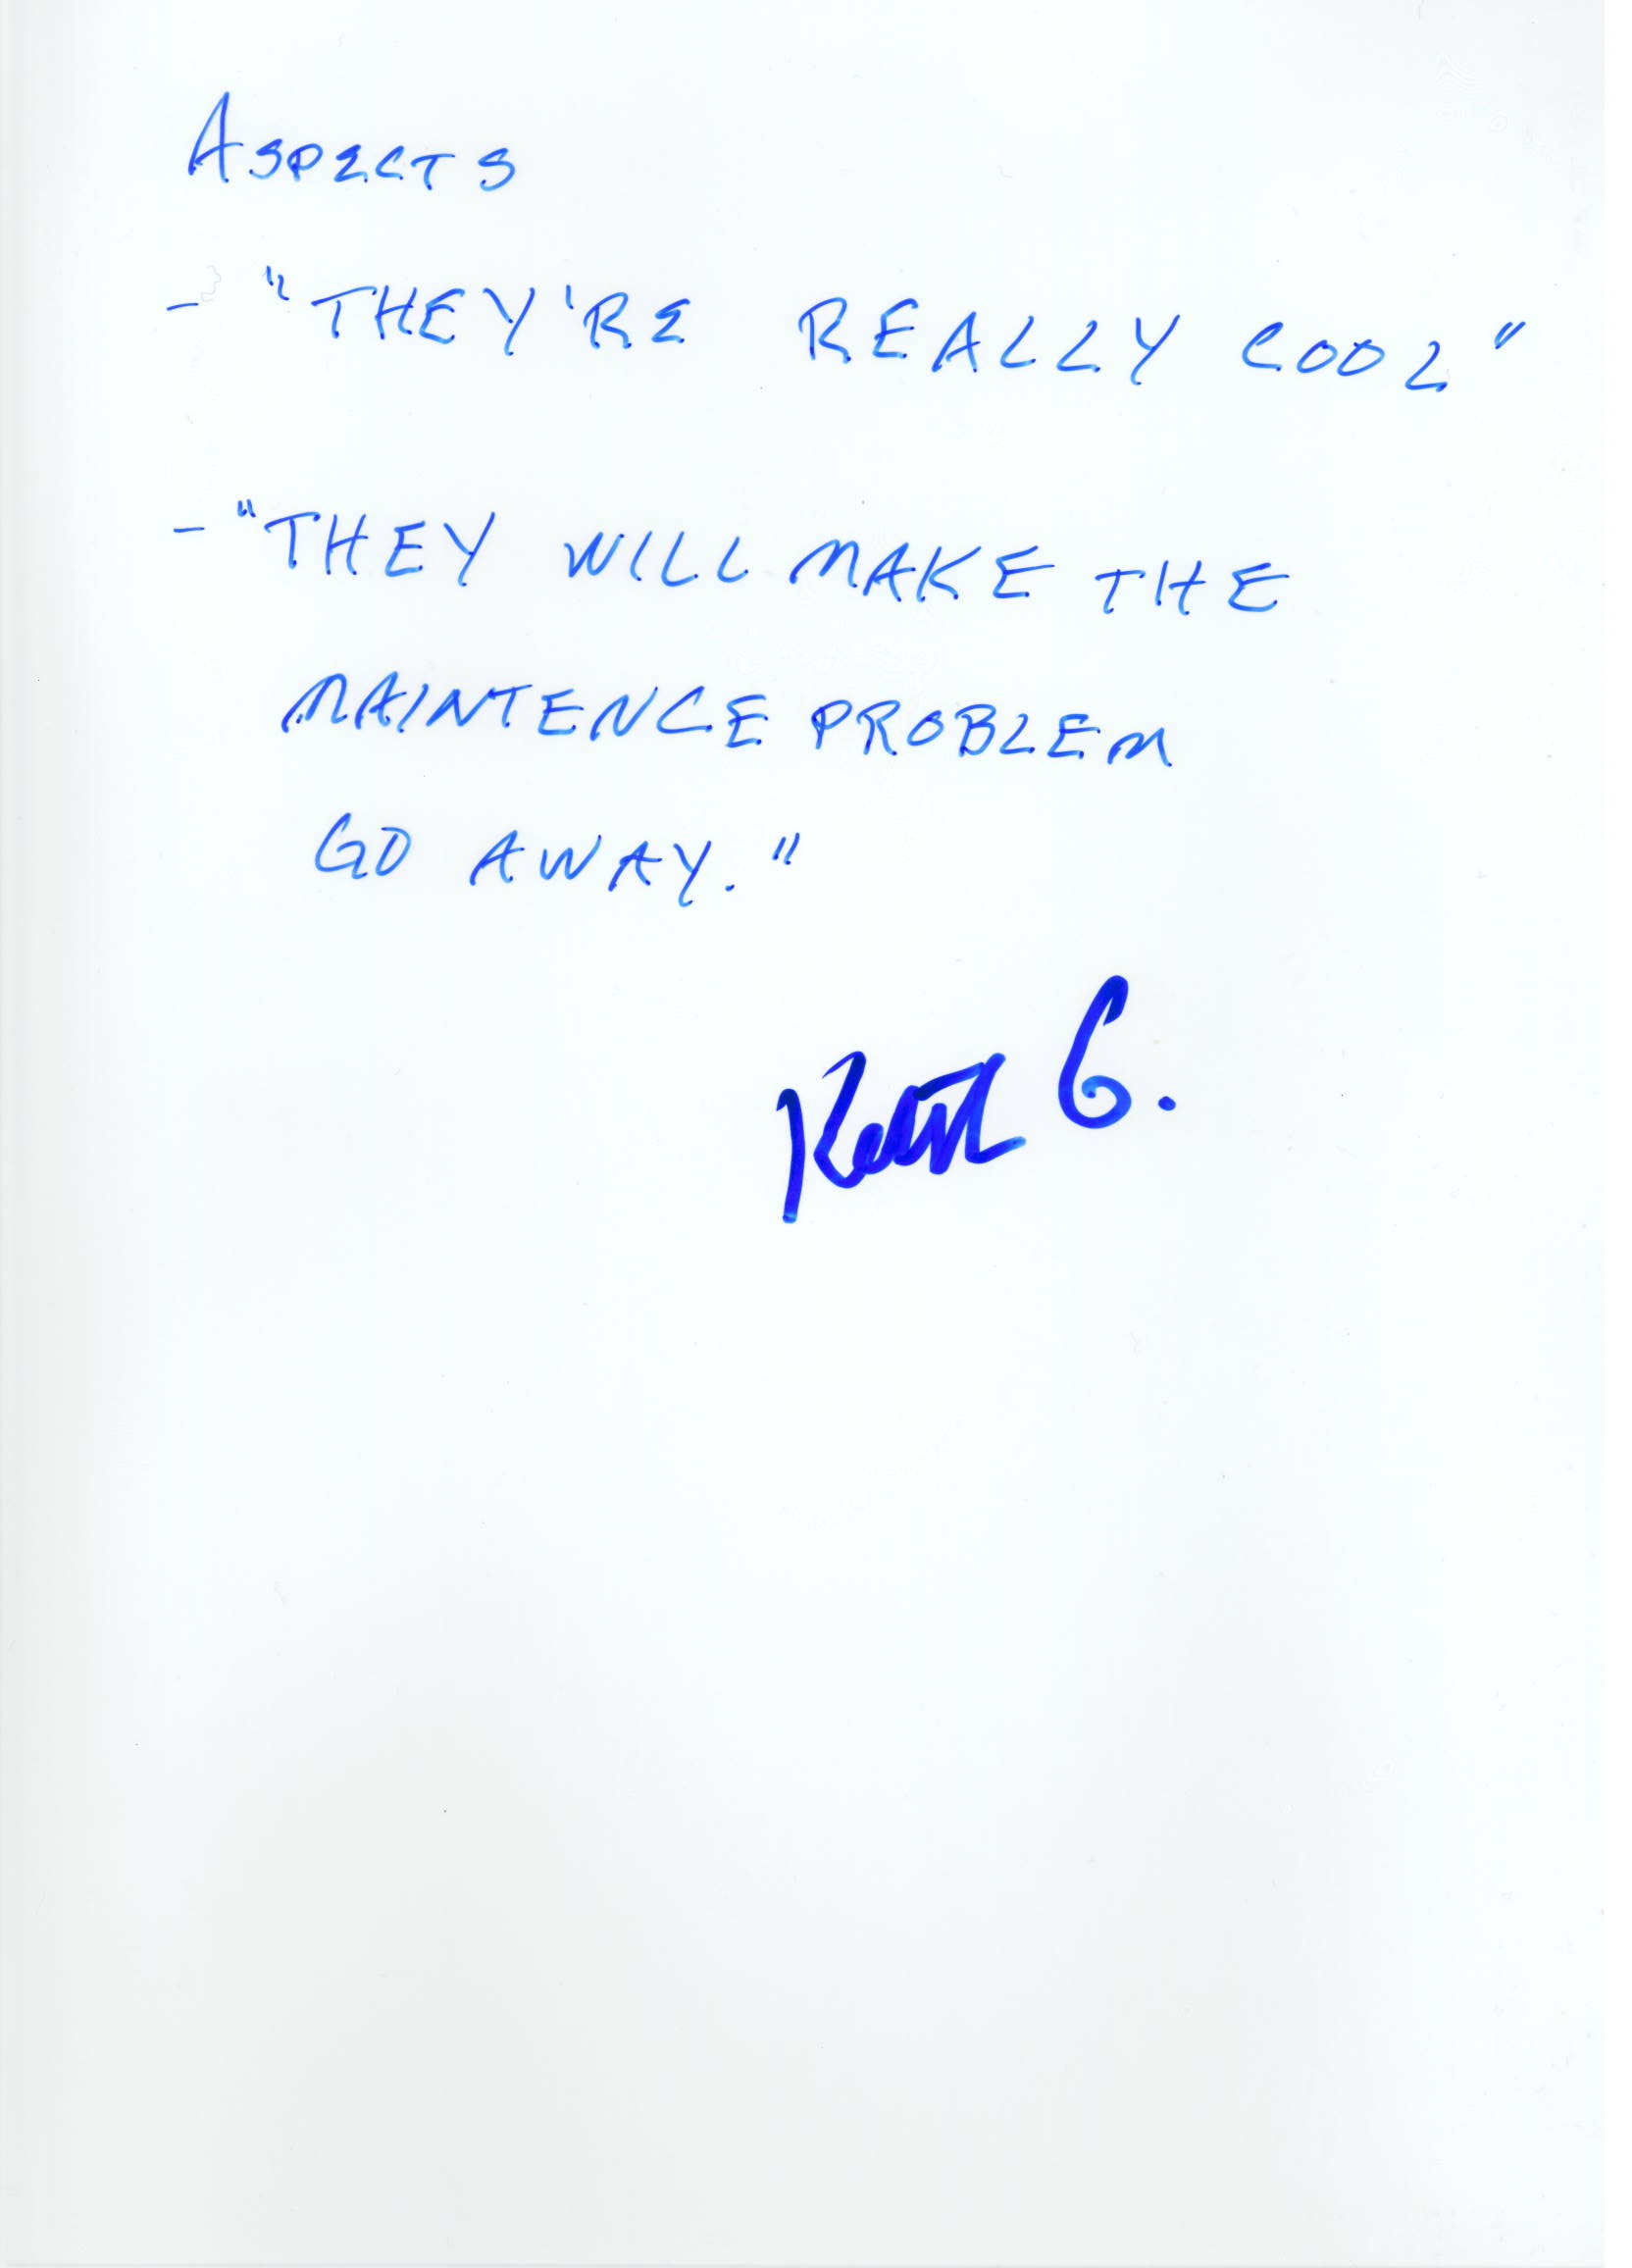 ASPECTS
- "THEY'RE REALLY COOL"
- "THEY WILL MAKE THE
MAINTENCE PROBLEM
GO AWAY."
Keith C.